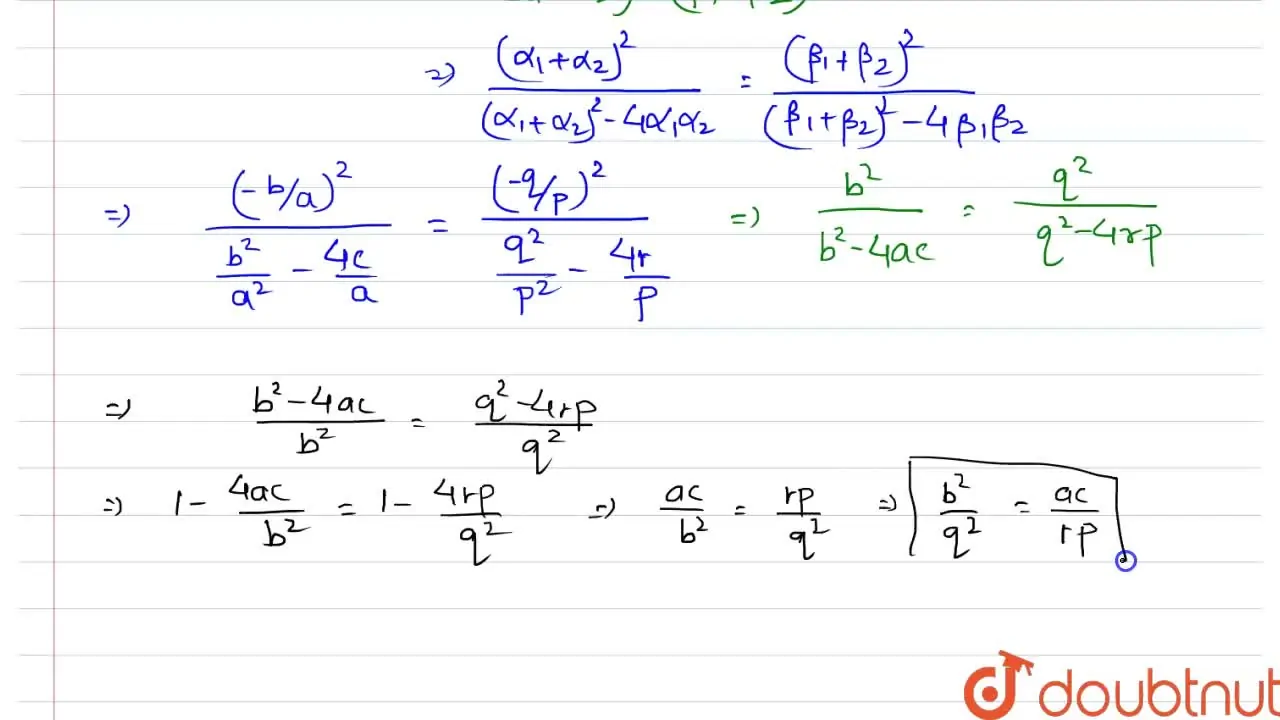 =) (α₁+α₂)² / ((α₁+α₂)² - 4α₁α₂) = (β₁+β₂)² / ((β₁+β₂)² - 4β₁β₂)
=) (-b/a)² / (b²/a² - 4c/a) = (-q/p)² / (q²/p² - 4r/p) =) b² / (b²-4ac) = q² / (q²-4rp)
=) (b²-4ac) / b² = (q²-4rp) / q²
=) 1 - 4ac/b² = 1 - 4rp/q² =) ac/b² = rp/q² =) b²/q² = ac/rp
doubtnut